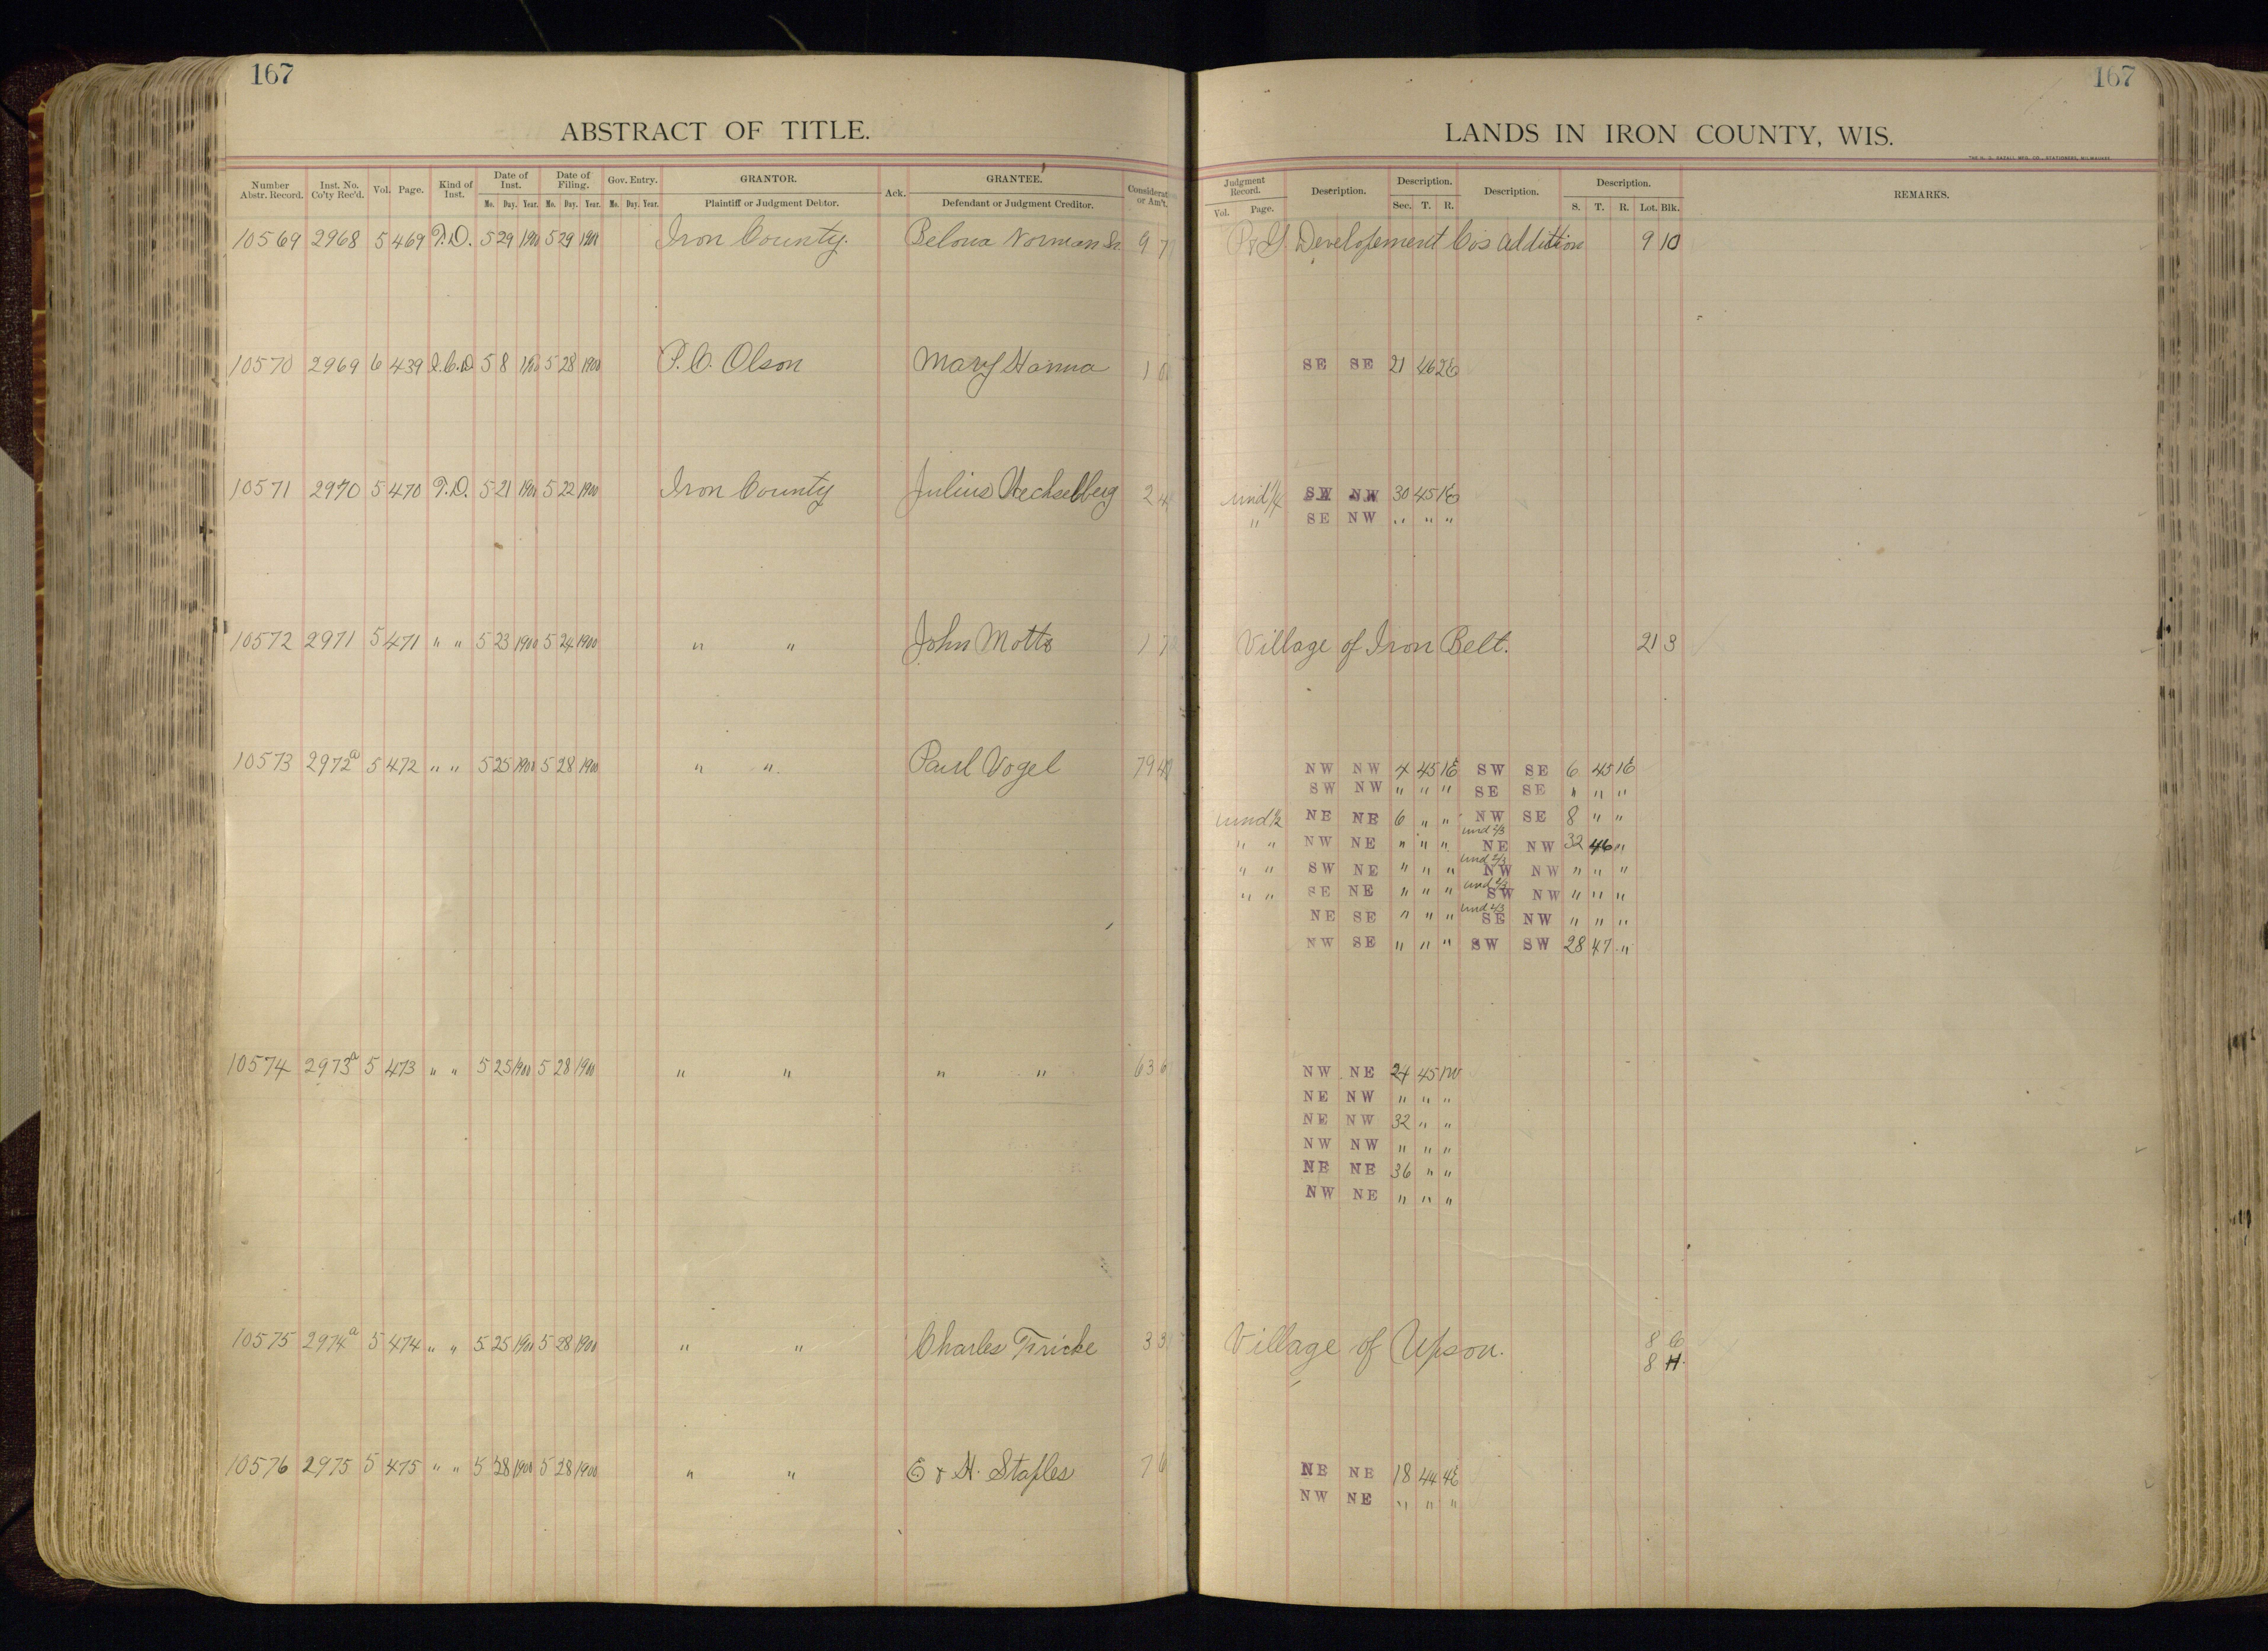 167
ABSTRACT OF TITLE.
Number Abstr. Record. Inst. No. Co'ty Rec'd. Vol. Page. Kind of Inst. Date of Inst. Mo. Day. Year. Date of Filing. Mo. Day. Year. Gov. Entry. Mo. Day. Year. GRANTOR. Plaintiff or Judgment Debtor. Ack. GRANTEE. Defendant or Judgment Creditor. Considerat or Am't.
10569 2968 5 469 T.D. 5 29 1900 5 29 1900 Iron County. Norman Sr. 9 7
10570 2969 6 439 2.C.D. 5 8 1900 5 28 1900 P.C. Olson Mary Hanna 1 0
10571 2970 5 470 T.D. 5 21 1900 5 22 1900 Iron County Julius 2 4
10572 2971 5 471 " " 5 23 1900 5 24 1900 " " John Motts 1 7
10573 2972a 5 472 " " 5 25 1900 5 28 1900 " " Paul Vogel 79 4
10574 2973a 5 473 " " 5 25 1900 5 28 1900 " " " " 63 6
10575 2974a 5 474 " " 5 25 1900 5 28 1900 " " Charles Fricke 3 3
10576 2975 5 475 " " 5 28 1900 5 28 1900 " " & H. Staples 7 6
167
LANDS IN IRON COUNTY, WIS.
Judgment Record. Vol. Page. Description. Description. Sec. T. R. Description. Description. S. T. R. Lot. Blk. REMARKS.
Developement Co's Addition 9 10
SE SE 21 46 2E
und 1/4 SW NW 30 45 1E
" SE NW " " "
Village of Iron Belt. 21 3
NW NW 4 45 1E SW SE 6 45 1E
SW NW " " " SE SE " " "
und 1/2 NE NE 6 " " NW SE 8 " "
" " NW NE " " " und 2/3 NE NW 32 46 "
" " SW NE " " " und 2/3 NW NW " " "
" " SE NE " " " und 2/3 SW NW " " "
NE SE " " " und 2/3 SE NW " " "
NW SE " " " SW SW 28 47 "
NW NE 24 45 1W
NE NW " " "
NE NW 32 " "
NW NW " " "
NE NE 36 " "
NW NE " " "
Village of Upson. 8 G
8 H.
NE NE 18 44 4E
NW NE " " "